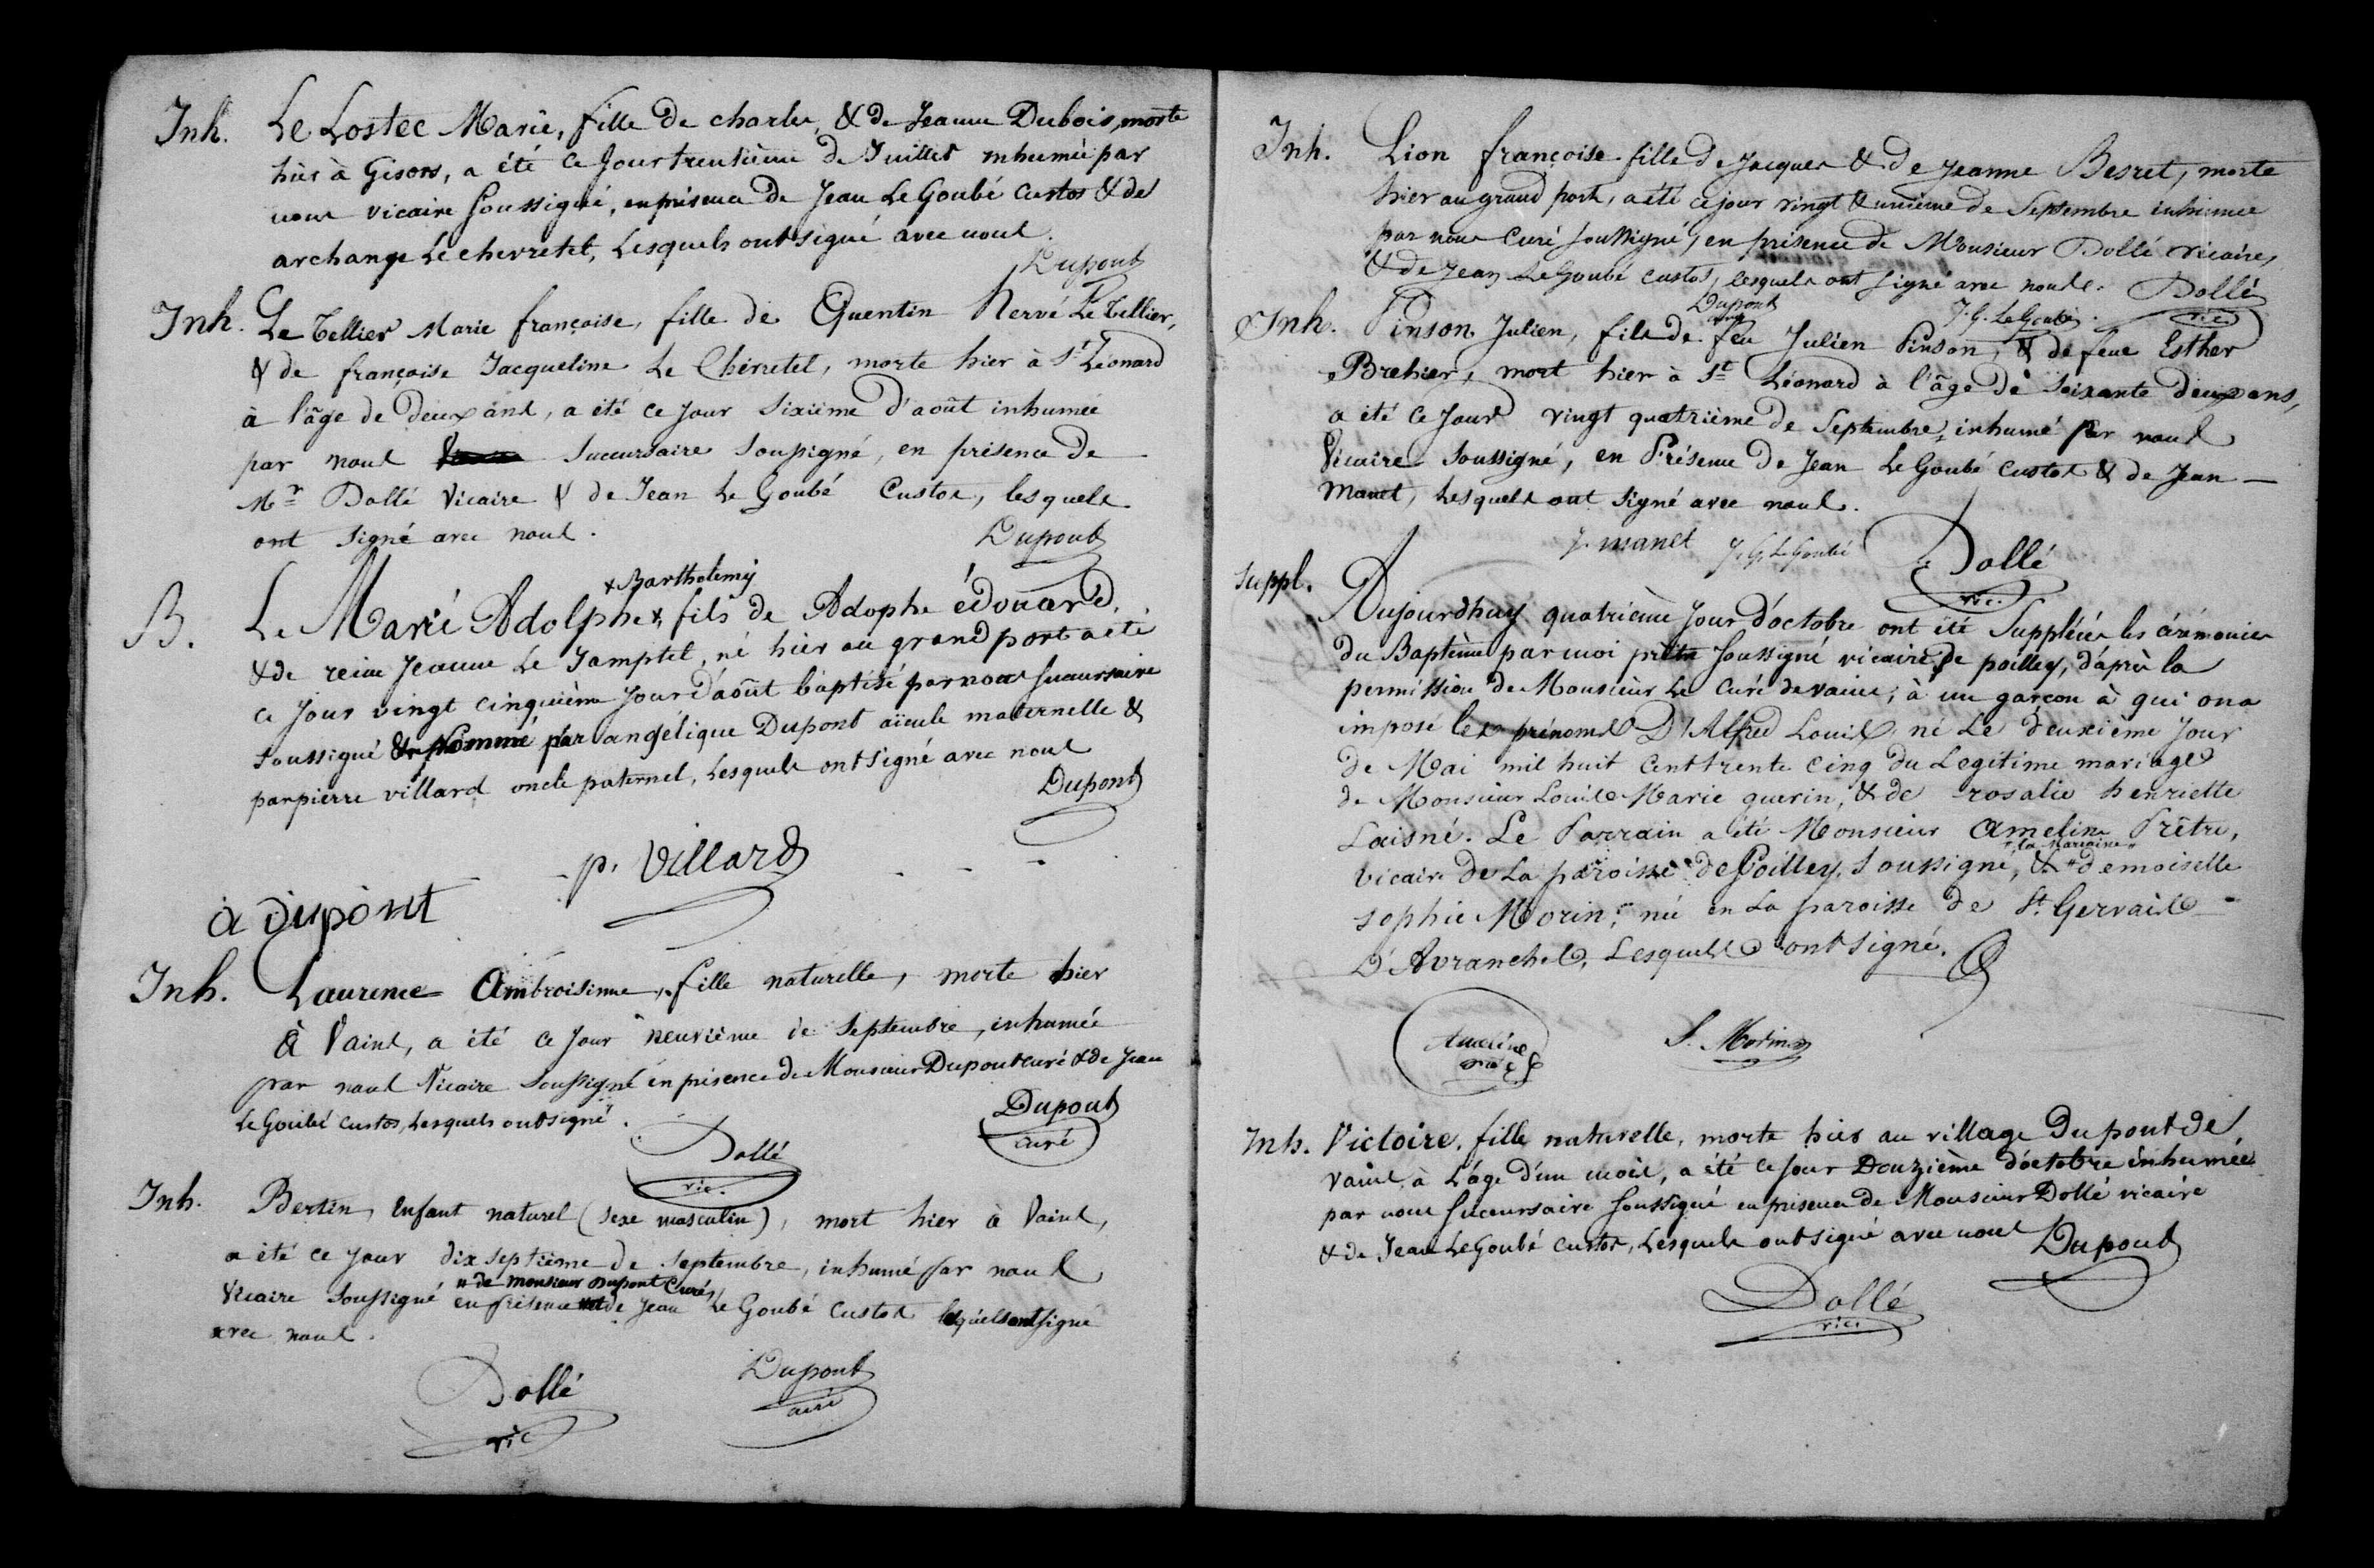 Inh. Le Lostec Marie, fille de charles, & de Jeanne Dubois, morte
hier à Gisors, a été ce Jour trentième de Juillet inhumée par
nous vicaire soussigné, en présence de Jean Le Goubé Custos & de
archange Le chevretel, Lesquels ont signé avec nous.
Dupont
Inh. Le Tellier Marie françoise, fille de Quentin Hervé Le Tellier,
& de françoise Jacqueline Le Chévretel, morte hier à St Léonard
à l'âge de deux ans, a été ce jour sixième d'août inhumée
par nous succursaire soussigné, en présence de
Mr Dollé Vicaire & de Jean Le Goubé Custos, lesquels
ont signé avec nous.
Dupont
x Bartholemy
B. Le Marié Adolphe x, fils de Adophe édouard,
& de reine Jeanne Le Jamptel, né hier au grand port a été
ce jour vingt cinquième jour d'août baptisé par nous succursaire
soussigné & nommé par angélique Dupont aïeule maternelle &
par pierre villard oncle paternel, Lesquels ont signé avec nous
Dupont
p. Villard
a dupont
Inh. Laurence Ambroisinne, fille naturelle, morte hier
à Vains, a été ce jour neuvième de Septembre, inhumée
par nous Vicaire soussigné en présence de Monsieur Dupont curé & de Jean
Le Goubé custos, Lesquels ont signé.
Dupont
curé
Dollé
vic.
Inh. Bertin, Enfant naturel (sexe masculin), mort hier à Vains,
a été ce jour dix septième de Septembre, inhumé par nous
" de monsieur Dupont Curé,
Vicaire soussigné en présence et de Jean Le Goubé Custos lesquels ont signé
avec nous.
Dupont
curé
Dollé
vic
Inh. Lion françoise fille de Jacques & de Jeanne Besret, morte
hier au grand port, a été ce jour vingt & unième de Septembre inhumée
par nous Curé soussigné, en présence de Monsieur Dollé vicaire,
& de Jean Le Goubé custos, lesquels ont signé avec nous. Dollé
vic.
Dupont
J. G. Le Goubé
Inh. Pinson Julien, fils de feu Julien Pinson, & de feue Esther
Brehier, mort hier à St Léonard à l'âge de soixante deux ans,
a été ce jour vingt quatrième de Septembre, inhumé par nous
Vicaire soussigné, en Présence de Jean Le Goubé Custos & de Jean
Manet, Lesquels ont signé avec nous.
J. manet J. G. Le Goubé Dollé
vic.
suppl. Aujourdhuy quatrième Jour d'octobre ont été Suppléées les cérémonies
du Baptême par moi prêtre soussigné vicaire de poilley, d'après la
permission de Monsieur Le Curé de vains, à un garçon à qui on a
imposé les prénoms D'Alfred Louis, né Le deuxième jour
de Mai mil huit cent trente cinq du Legitime mariage
de Monsieur Louis Marie guerin, & de rosalie henriette
Laisné. Le Parrain a été Monsieur Ameline Prêtre,
" la Marraine "
Vicaire de La paroisse de Poilley, Soussigné, & " demoiselle
sophie Morin, née en La paroisse de St Gervais
D'Avranches, Lesquels ont signé.
Ameline
S. Morin
Inh. Victoire, fille naturelle, morte hier au village Du pont de
vains, à L'âge d'un mois, a été ce jour Douzième d'octobre inhumée
par nous succursaire soussigné en présence de Monsieur Dollé vicaire
& de Jean Le Goubé custos, Lesquels ont signé avec nous Dupont
Dollé
vic.